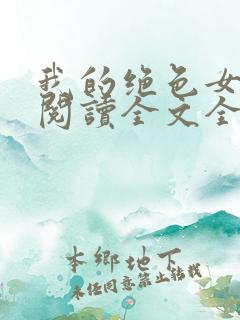 我的绝色女
阅讀全文全
本鄉地下
未任同意禁止转载